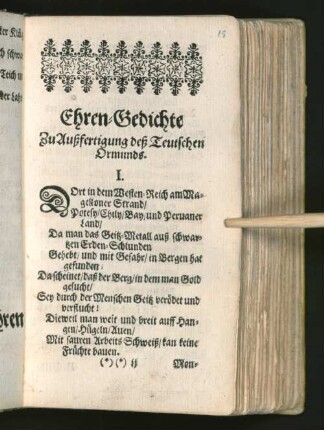 ter
ch schwa
Teich
ren
15
Ehren-Gedichte
Zu Außfertigung deß Teutschen
Ormunds.
I.
DOrt in dem Westen-Reich am Ma-
gelloner Strand/
Potosy/Chyly/Bay/und Peruaner
Land/
Da man das Geitz-Metall auß schwar-
tzen Erden-Schlunden
Gehebt/ und mit Gefahr/ in Bergen hat
gefunden:
Da scheinet/ daß der Berg/ in dem man Gold
gesucht/
Sey durch der Menschen Geitz verödet und
verflucht:
Dieweil man weit und breit auff Han-
gen/Hügeln/Auen/
Mit saurem Arbeits Schweiß/ kan keine
Früchte bauen.
(*) (*) ij
Mon-